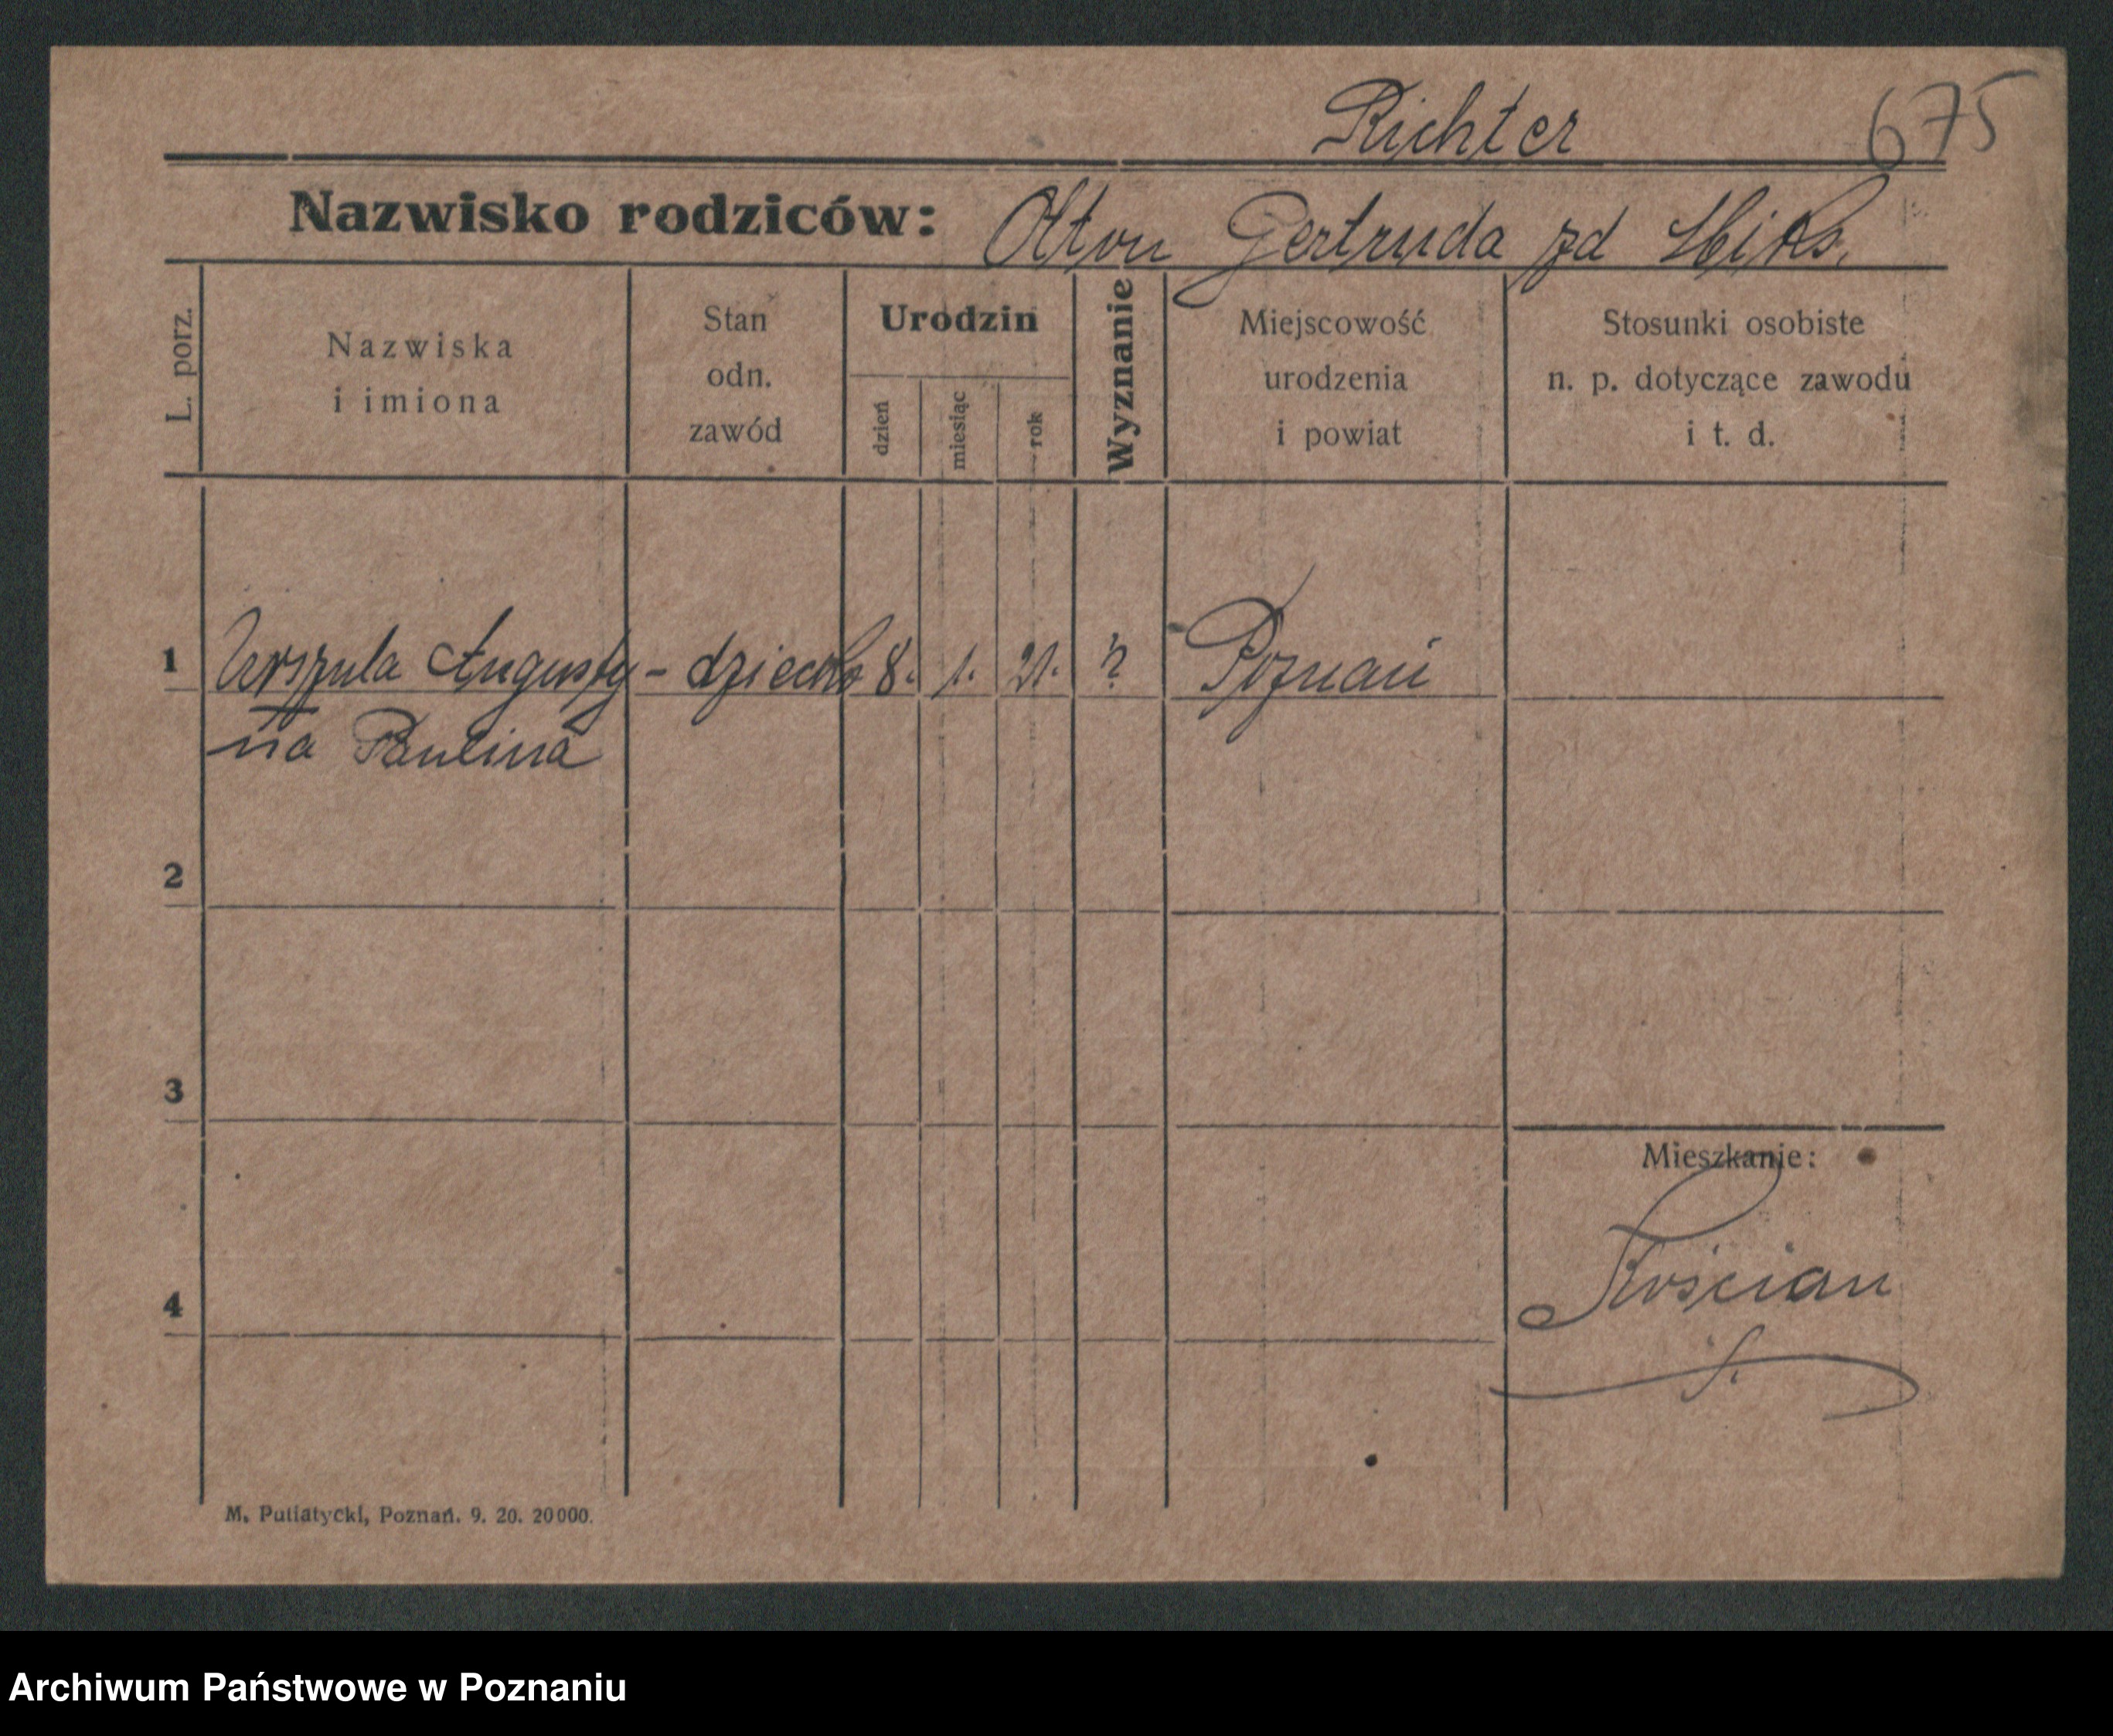 Richter 675
Nazwisko rodziców: Otton Gertruda zd
L. porz.
Nazwiska
i imiona
Stan
odn.
zawód
Urodzin
dzień
miesiąc
rok
Wyznanie
Miejscowość
urodzenia
i powiat
Stosunki osobiste
n. p. dotyczące zawodu
i t. d.
1 Urszula Augusty- dziecko 8. 1. 21. ? Poznań
na Paulina
2
3
Mieszkanie:
4 Kościan
M. Putiatycki, Poznań. 9. 20. 20000.
Archiwum Państwowe w Poznaniu